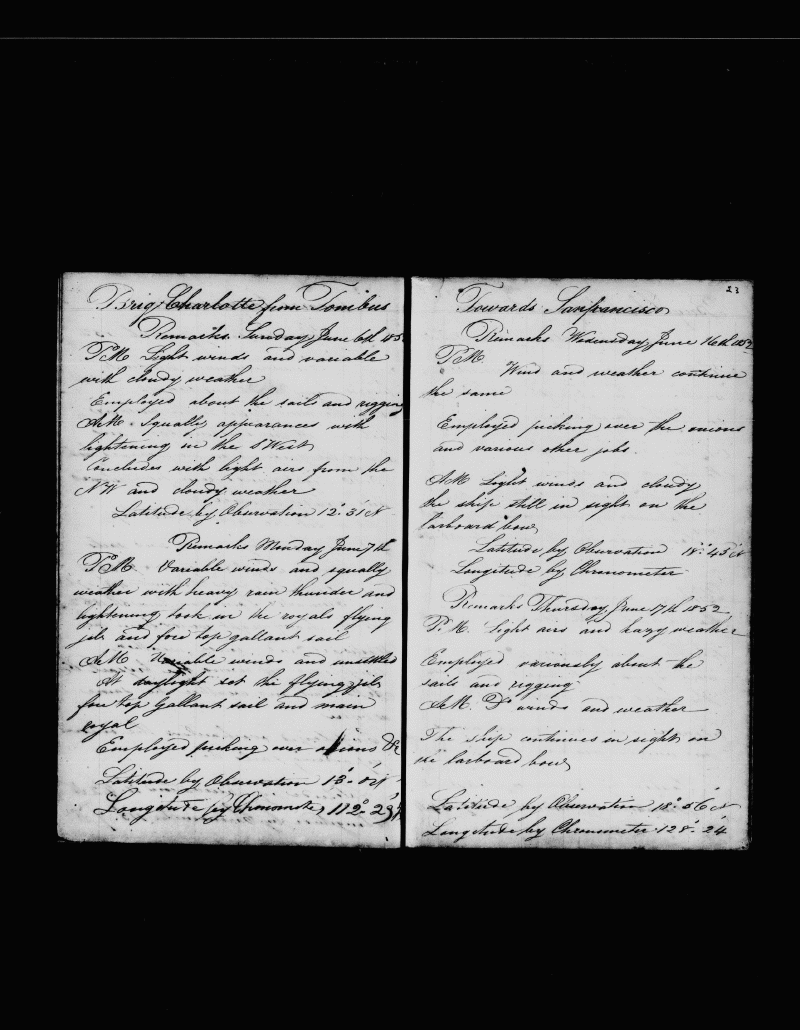 Brig Charlotte from Tombus
Remarks Sunday June 6th 185
P.M. Light winds and variable
with cloudy weather
Employed about the sails and rigging
A.M. Squally appearances with
lightening in the S West
Concludes with light airs from the
NW and cloudy weather
Latitude by Observation 12° 31' N
Remarks Monday June 7th
P.M. Variable winds and squally
weather with heavy rain thunder and
lightening took in the royals flying
jib and fore top gallant sail
A.M. Variable winds and unsettled
At daylight set the flying jib
fore top Gallant sail and main
royal
Employed picking over onions &c
Latitude by Observation 13°
Longitude by Chronometer 112°
23
Towards Sanfrancisco
Remarks Wednesday June 16th 1852
P.M.
Wind and weather continue
the same
Employed picking over the onions
and various other jobs.
A.M. Light winds and cloudy
the ship still in sight on the
larboard bow
Latitude by Observation 18° 45' N
Longitude by Chronometer
Remarks Thursday June 17th 1852
P.M. Light airs and hazy weather
Employed variously about the
sails and rigging
A.M. Do winds and weather
The ship continues in sight on
the larboard bow
Latitude by Observation 18° 56' N
Longitude by Chronometer 128° 24'